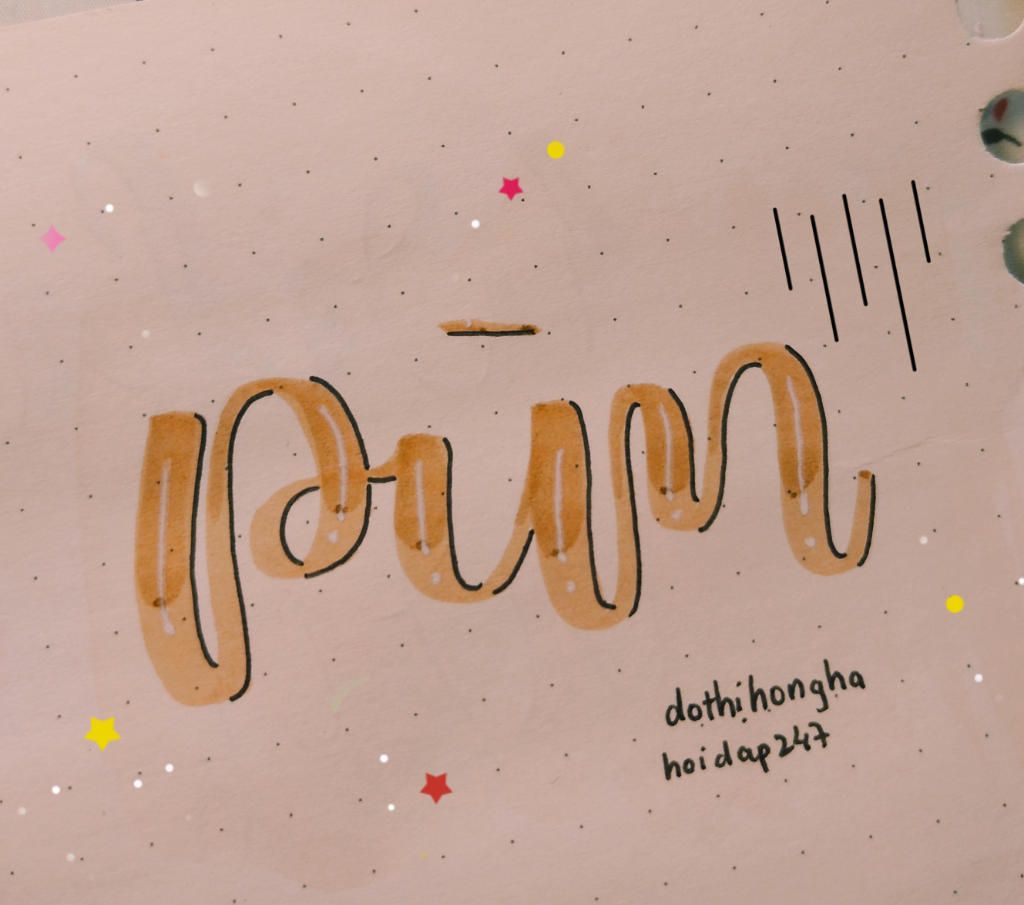 pim
dothihongha
hoidap247